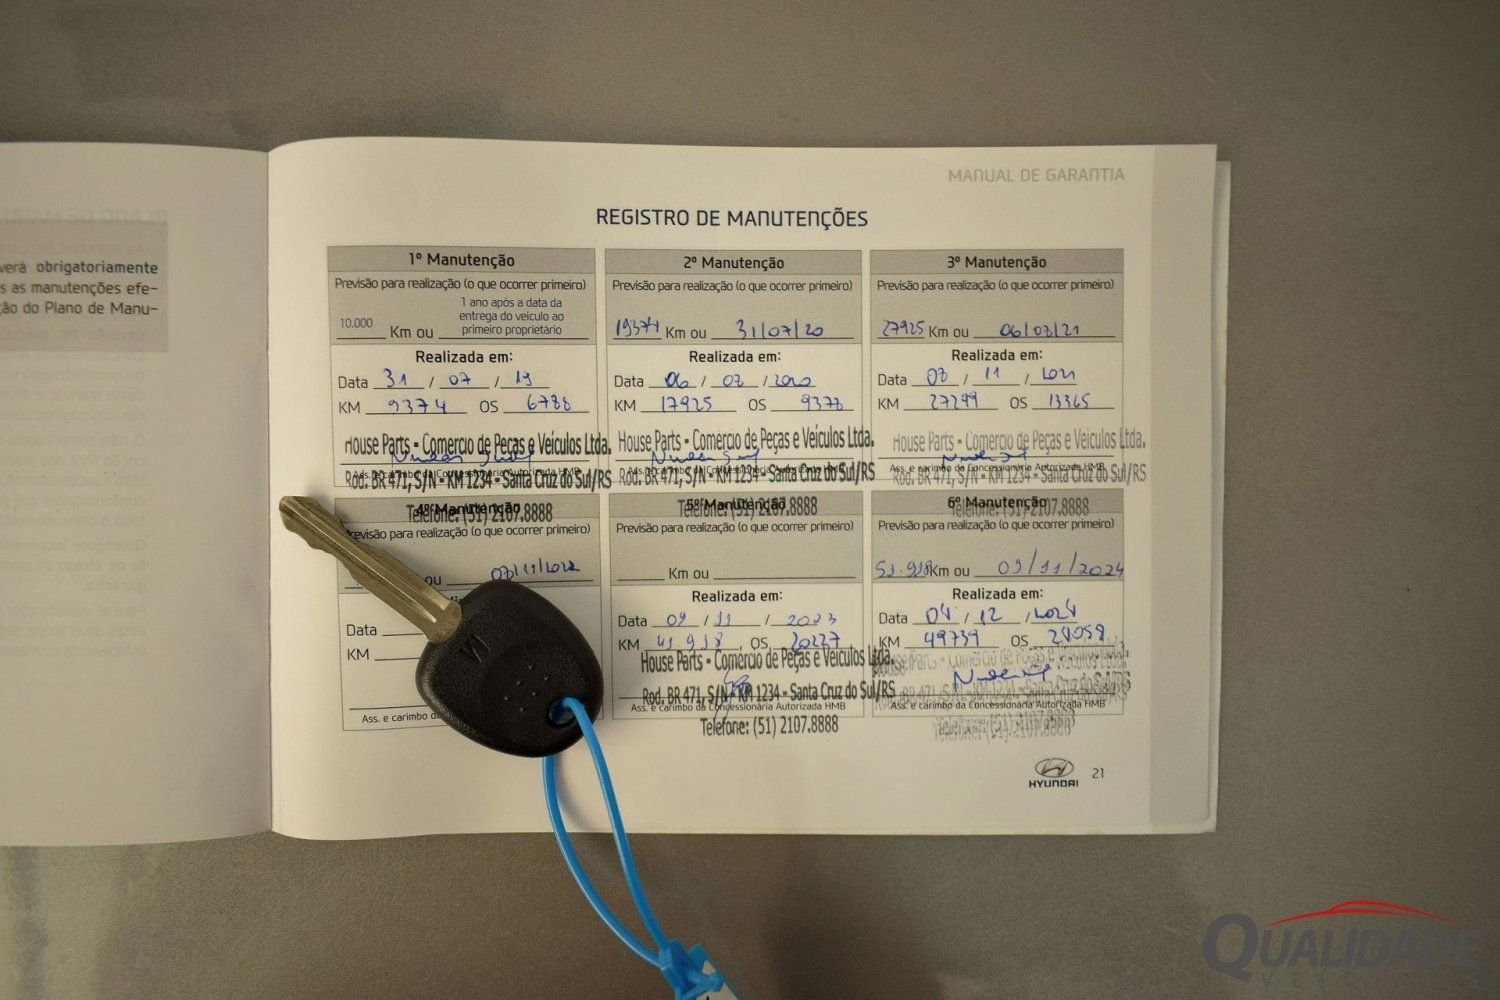 MANUAL DE GARANTIA
REGISTRO DE MANUTENÇÕES
verá obrigatoriamente
s as manutenções efe-
ção do Plano de Manu-
1º Manutenção
Previsão para realização (o que ocorrer primeiro)
1 ano após a data da
entrega do veículo ao
10.000 Km ou primeiro proprietário
Realizada em:
Data 31 / 07 / 19
KM 9374 OS 6788
House Parts - Comércio de Peças e Veículos Ltda.
Ass. e carimbo da Concessionária Autorizada HMB
Rod. BR 471, S/N - KM 1234 - Santa Cruz do Sul/RS
Telefone: (51) 2107.8888
2º Manutenção
Previsão para realização (o que ocorrer primeiro)
19374 Km ou 31/07/20
Realizada em:
Data 06 / /2020
KM 17925 OS
House Parts - Comércio de Peças e Veículos Ltda.
Ass. e carimbo da Concessionária Autorizada HMB
Rod. BR 471, S/N - KM 1234 - Santa Cruz do Sul/RS
Telefone: (51) 2107.8888
3º Manutenção
Previsão para realização (o que ocorrer primeiro)
27925 Km ou
Realizada em:
Data / 11 / 2021
KM 27299 OS 13365
House Parts - Comércio de Peças e Veículos Ltda.
Ass. e carimbo da Concessionária Autorizada HMB
Rod. BR 471, S/N - KM 1234 - Santa Cruz do Sul/RS
Telefone: (51) 2107.8888
4º Manutenção
Previsão para realização (o que ocorrer primeiro)
ou /11/2022
Data
KM
Ass. e carimbo da
5º Manutenção
Previsão para realização (o que ocorrer primeiro)
Km ou
Realizada em:
Data 09 / 11 / 2023
KM 41918 OS 20227
House Parts - Comércio de Peças e Veículos Ltda.
Rod. BR 471, S/N - KM 1234 - Santa Cruz do Sul/RS
Ass. e carimbo da Concessionária Autorizada HMB
Telefone: (51) 2107.8888
6º Manutenção
Previsão para realização (o que ocorrer primeiro)
51.918 Km ou 09/11/2024
Realizada em:
Data 04 / 12 / 2024
KM 49739 OS 24058
House Parts - Comércio de Peças e Veículos Ltda.
Ass. e carimbo da Concessionária Autorizada HMB
Telefone: (51) 2107.8888
HYUNDAI 21
QUALIDADE